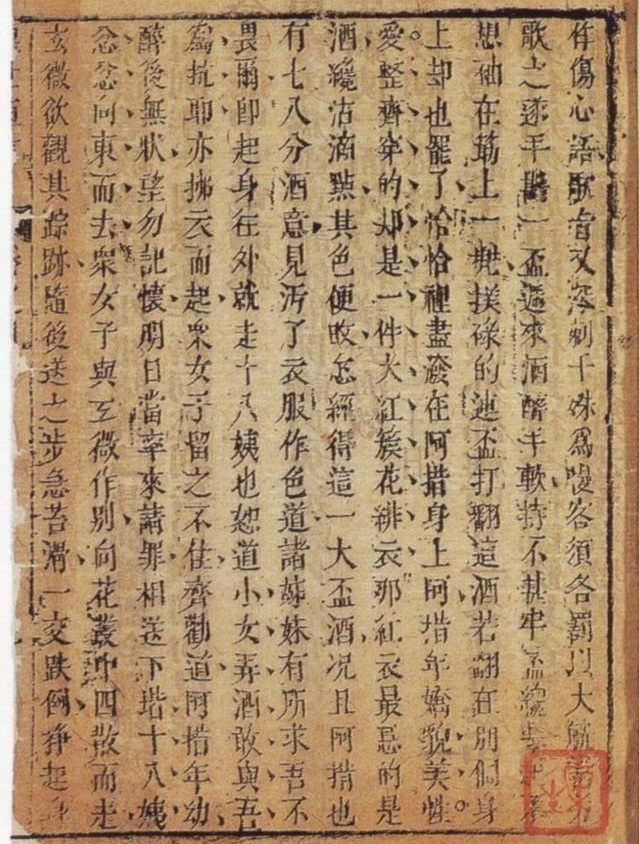 作傷心語歌旨又深刺十殊爲慢客須各罰以大觥
歌之遂手斟一盃遞來酒醉手軟持不甚牢盃纔舉起不
想袖在筯上一兜撲碌的連盃打翻這酒若翻在別個身
上却也罷了恰恰裡盡潑在阿措身上阿措年嬌貌美性
愛整齊穿的却是一件大紅簇花緋衣那紅衣最忌的是
酒纔沾滴點其色便敗怎經得這一大盃酒況且阿措也
有七八分酒意見污了衣服作色道諸姊妹有所求吾不
畏爾卽起身往外就走十八姨也怒道小女弄酒敢與吾
爲抗耶亦拂衣而起衆女子留之不住齊勸道阿措年幼
醉後無狀望勿記懷明日當率來請罪相送下堦十八姨
忿忿向東而去衆女子與玄微作別向花叢中四散而走
玄微欲觀其踪跡隨後送之步急苔滑一交跌倒掙起身